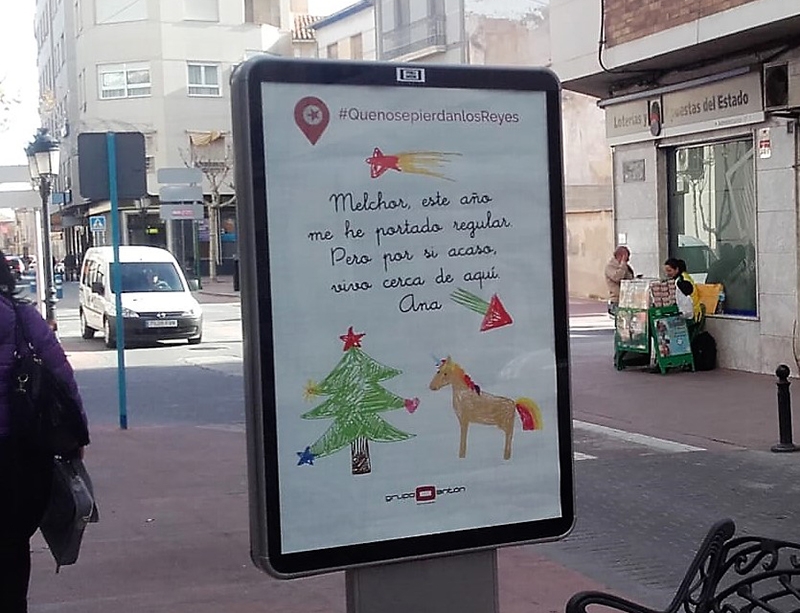 #QuenosepierdanlosReyes
Melchor, este año
me he portado regular.
Pero por si acaso,
vivo cerca de aquí.
Ana
grupo anton
Loterías y Apuestas del Estado